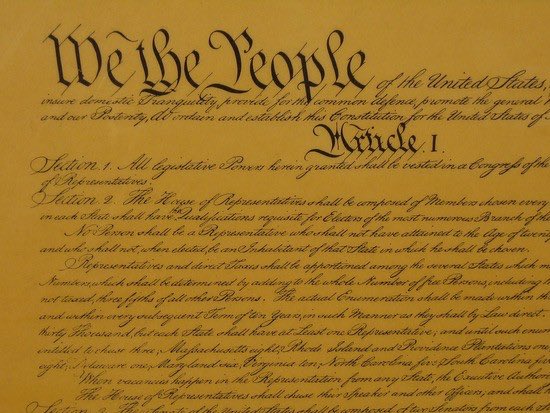 We the People of the United States,
insure domestic Tranquility, provide for the common defence, promote the general
and our Posterity, do ordain and establish this Constitution for the United States of
Article. I.
Section. 1. All legislative Powers herein granted shall be vested in a Congress of the
of Representatives.
Section. 2. The House of Representatives shall be composed of Members chosen every
in each State shall have the Qualifications requisite for Electors of the most numerous Branch of the
No Person shall be a Representative who shall not have attained to the Age of twenty
and who shall not, when elected, be an Inhabitant of that State in which he shall be chosen.
Representatives and direct Taxes shall be apportioned among the several States which may
Numbers, which shall be determined by adding to the whole Number of free Persons, including
not taxed, three fifths of all other Persons. The actual Enumeration shall be made within
and within every subsequent Term of ten Years, in such Manner as they shall by Law direct.
thirty Thousand, but each State shall have at Least one Representative; and until such enum
entitled to chuse three, Massachusetts eight, Rhode Island and Providence Plantations one
eight, Delaware one, Maryland six, Virginia ten, North Carolina five, South Carolina five
When vacancies happen in the Representation from any State, the Executive Author
The House of Representatives shall chuse their Speaker and other Officers; and shall
Section. 3. The Senate of the United States shall be composed of two Senators from each